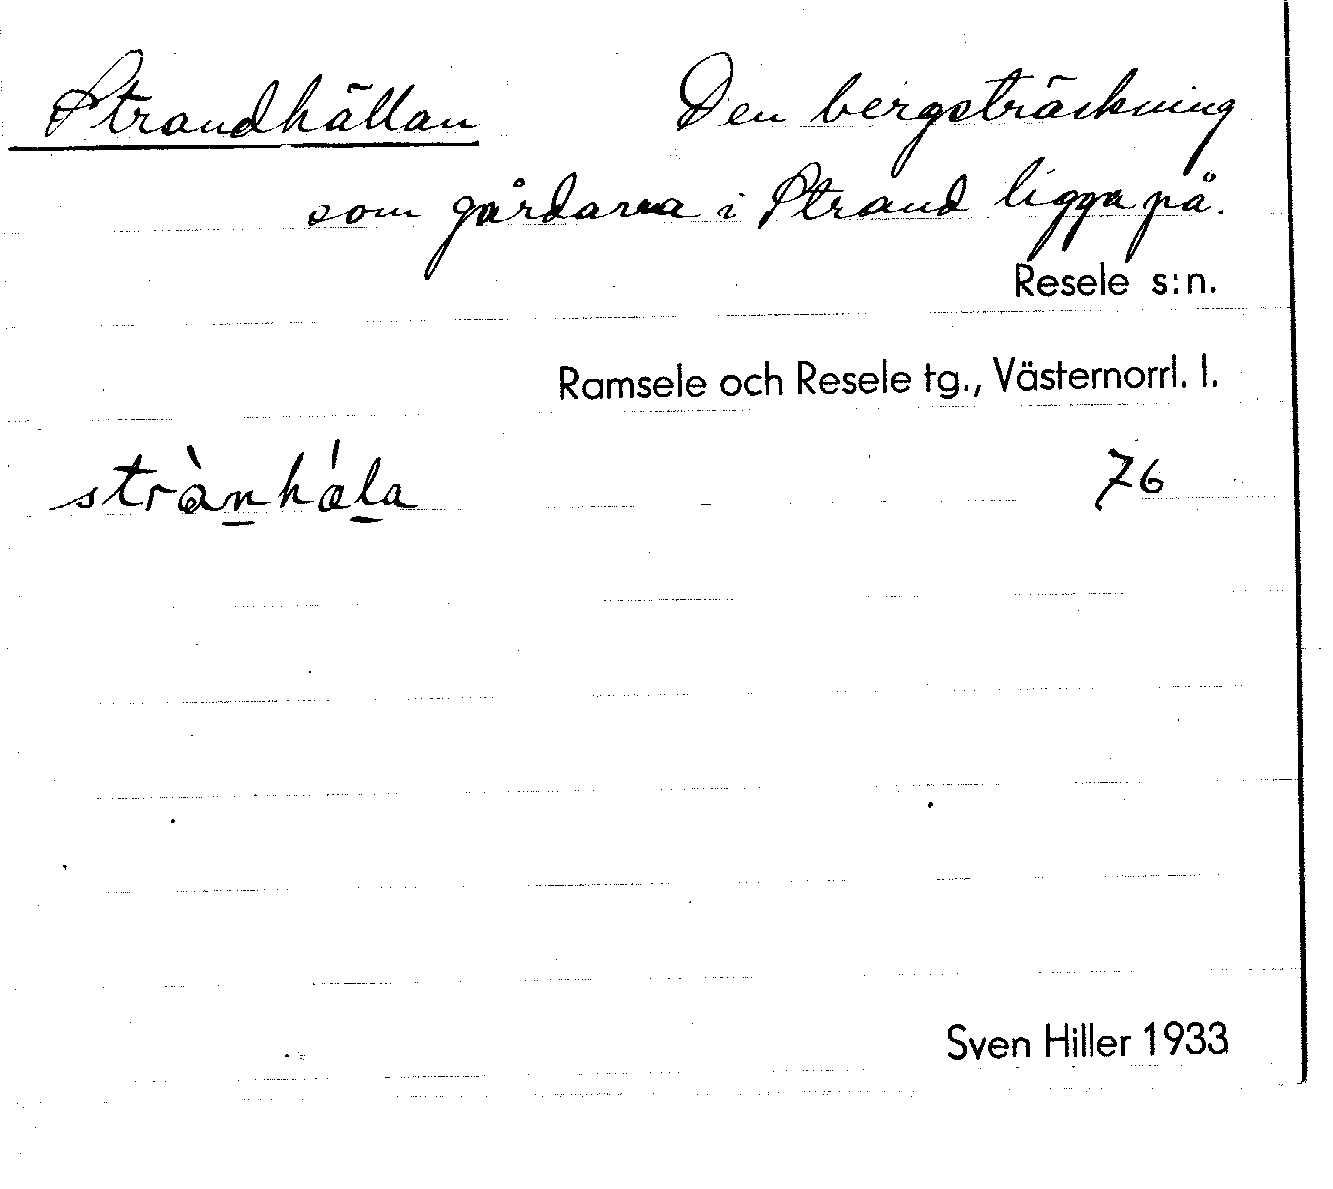 Strandhällan Den bergsträckning
som gårdarna i Strand ligga på.
Resele s:n.
Ramsele och Resele tg., Västernorrl. l.
strànhála 76
Sven Hiller 1933